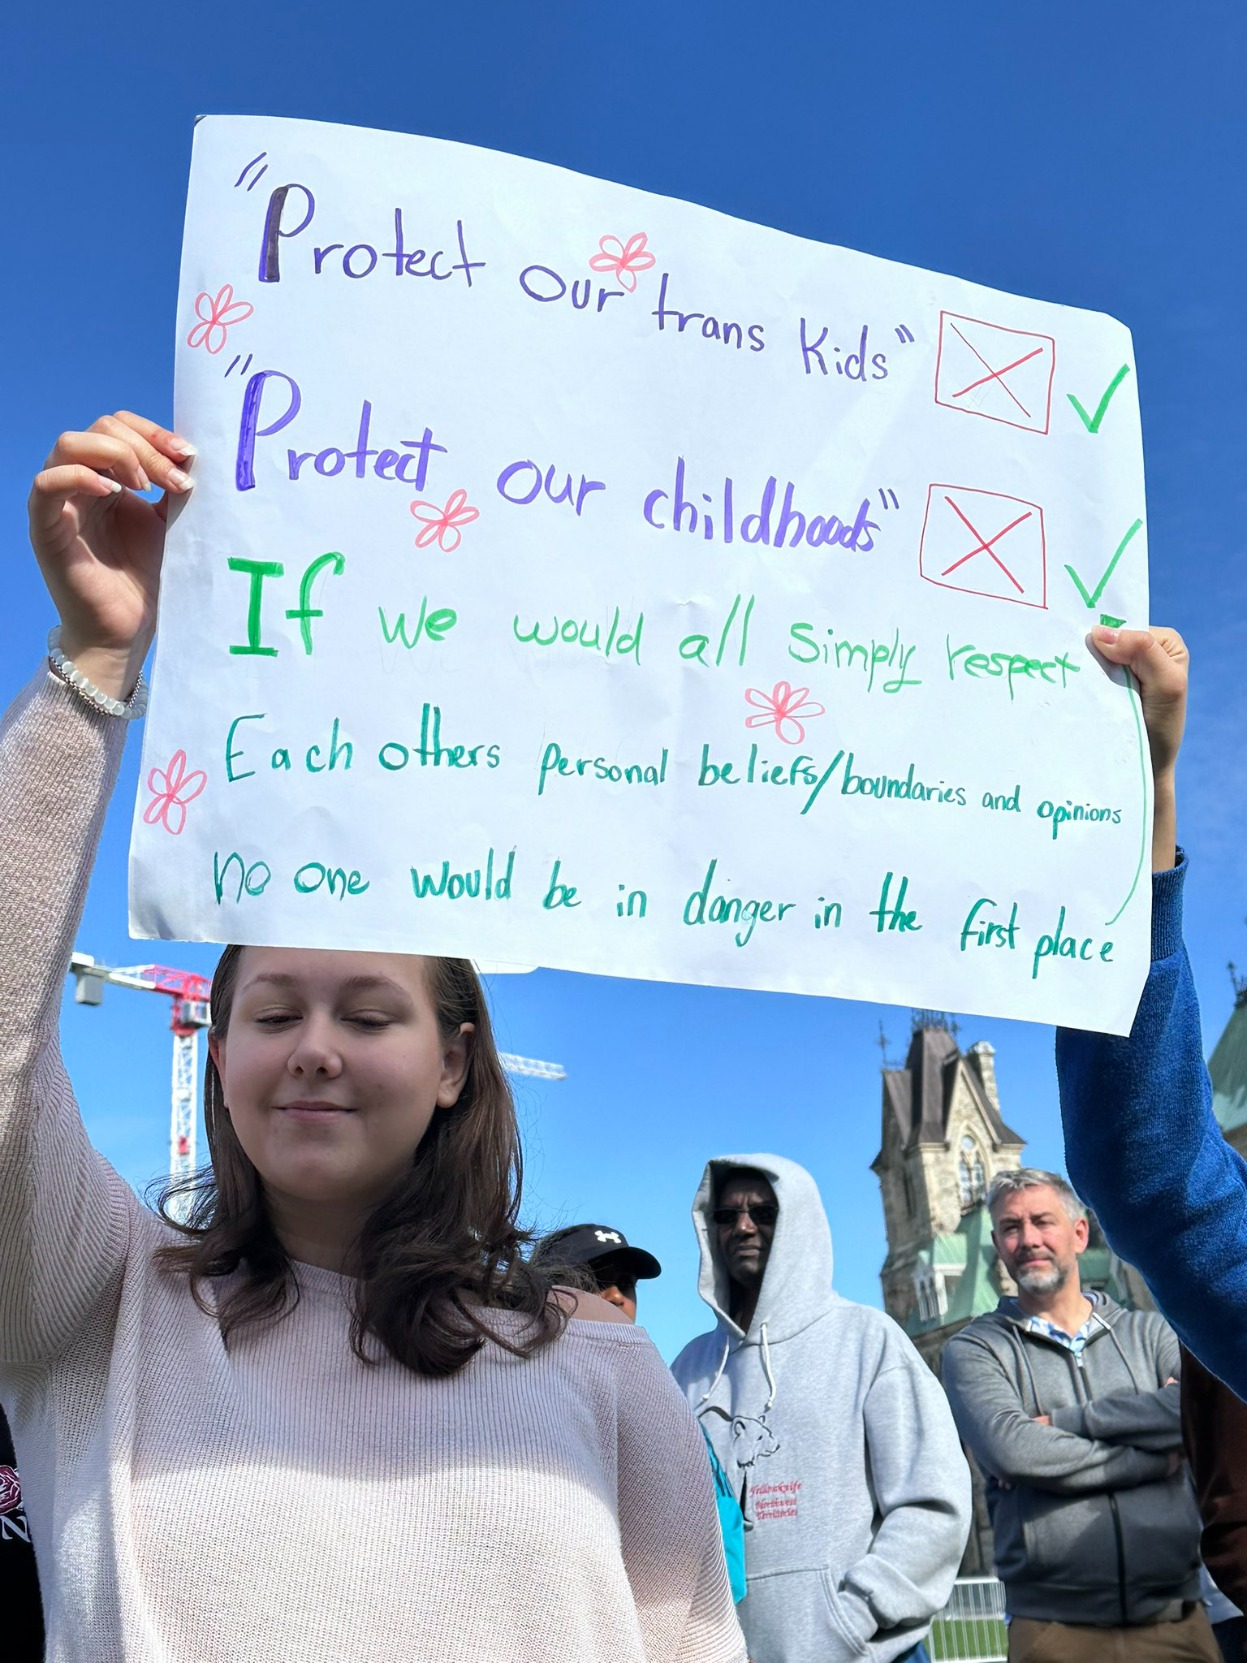 "Protect our trans Kids"
"Protect our childhoods"
If we would all simply respect
Each others personal beliefs/boundaries and opinions
no one would be in danger in the first place
Yellowknife
Northwest
Territories